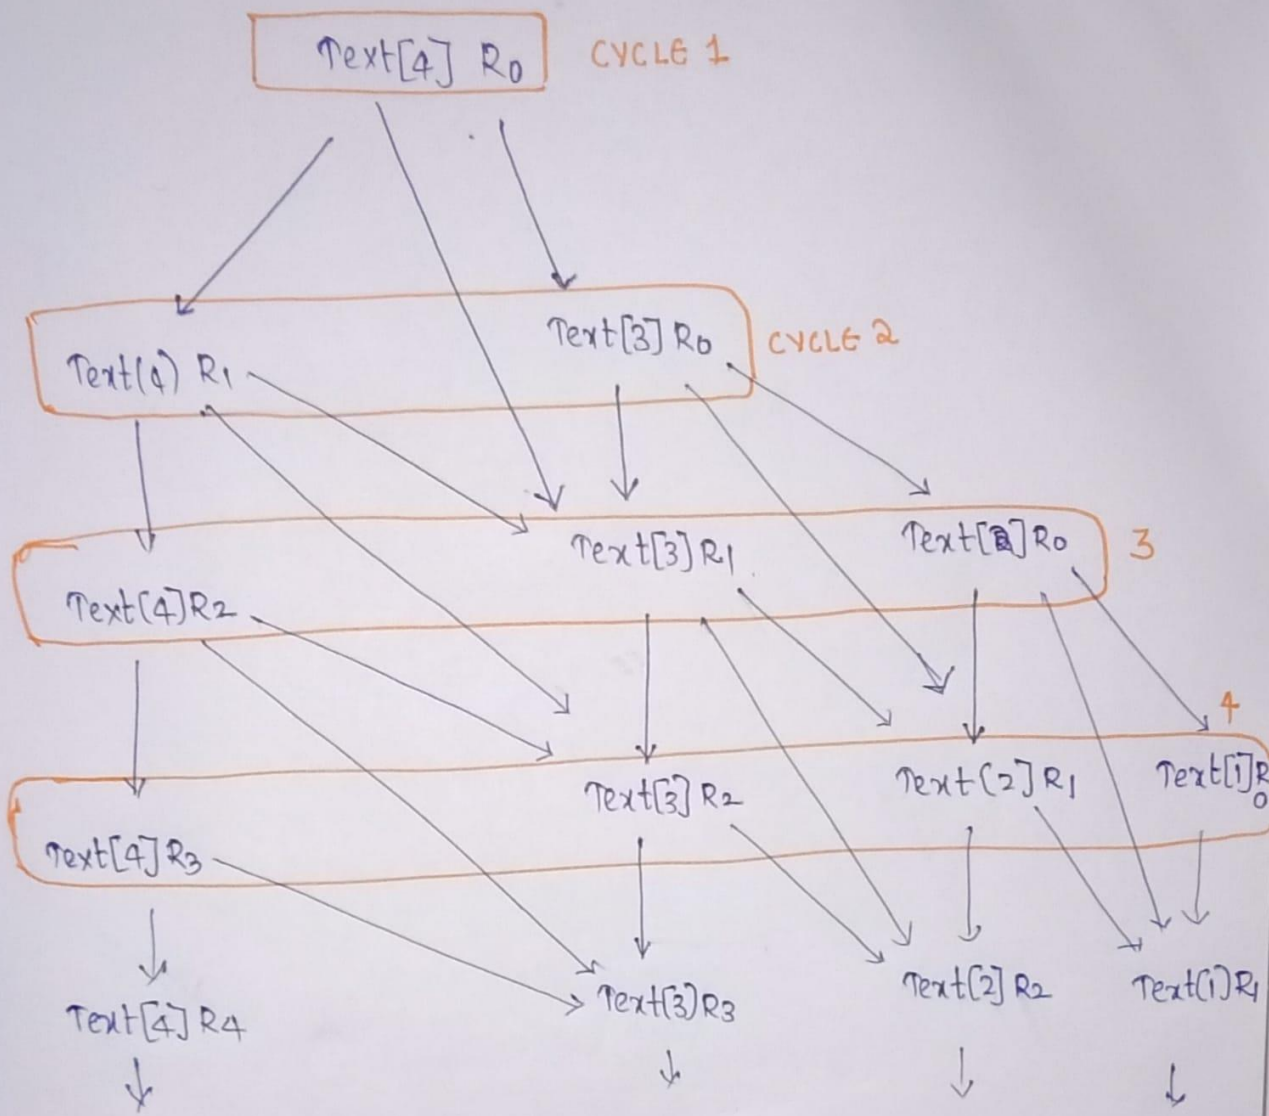 Text[4] R0 CYCLE 1
Text[3] R0 CYCLE 2
Text(4) R1
Text[3] R1 Text[2] R0 3
Text[4] R2
4
Text[3] R2 Text[2] R1 Text[1] R0
Text[4] R3
Text[4] R4 Text(3) R3 Text[2] R2 Text(1) R1